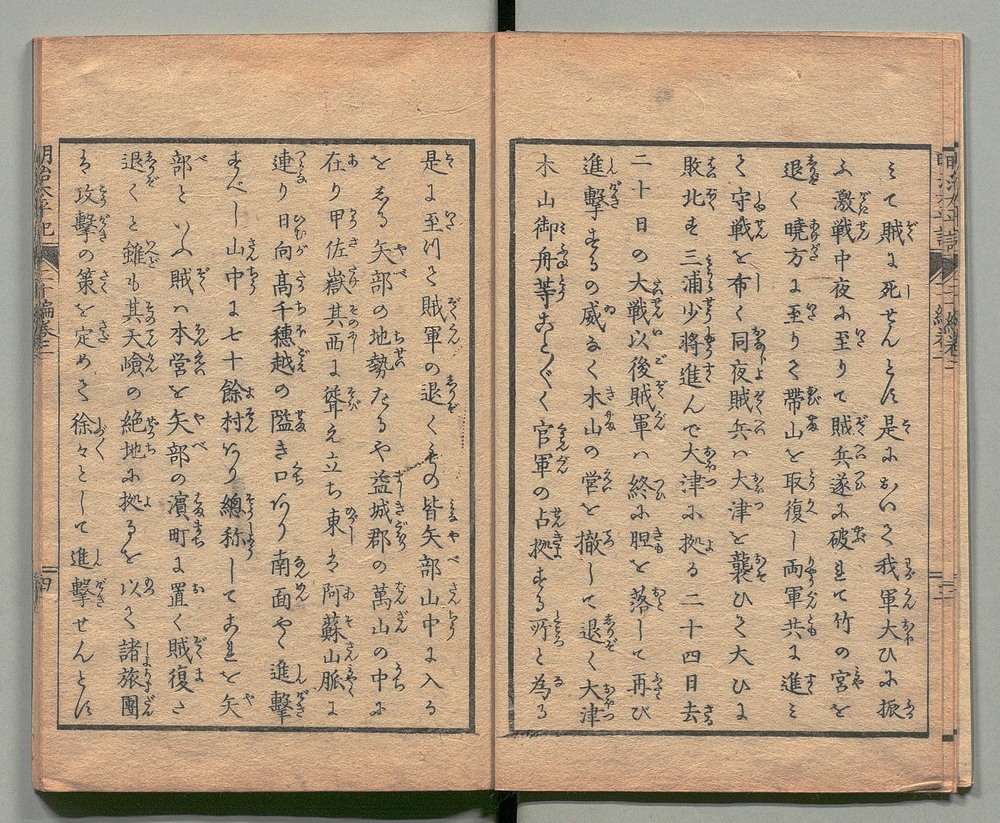 ミて賊に死せんとす是において我軍大ひに振
ふ激戦中夜に至りて賊兵遂に破れて竹の宮を
退く暁方に至りて帯山を取復し両軍共に進ミ
て守戦を布く同夜賊兵ハ大津を襲ひて大ひに
敗北す三浦少将進んで大津に拠る二十四日去
二十日の大戦以後賊軍ハ終に胆を落して再び
進撃するの威なく木山の営を撤して退く大津
木山御舟等こと〴〵く官軍の占拠する所と為る
是に至つて賊軍の退くもの皆矢部山中に入る
そも〳〵矢部の地勢たるや益城郡の萬山の中に
在り甲佐嶽其西に聳え立ち東は阿蘇山脈に
連り日向高千穂越の隘き口あり南面やゝ進撃
すべし山中に七十餘村あり總称してこれを矢
部といふ賊ハ本営を矢部の濱町に置く賊復さ
退くと雖も其天嶮の絶地に拠るを以て諸旅團
は攻撃の策を定めて徐々として進撃せんとす
明治太平記
二十編巻之二
四